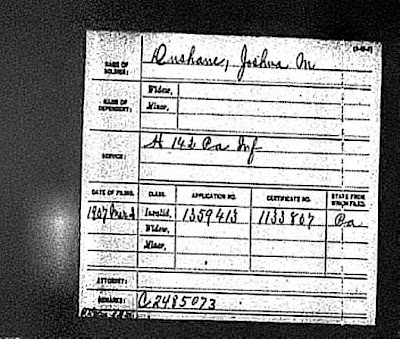 NAME OF SOLDIER: Dushane, Joshua M
NAME OF DEPENDENT: Widow,
Minor,
SERVICE: H 142 Pa Inf
DATE OF FILING. CLASS. APPLICATION NO. CERTIFICATE NO. STATE FROM WHICH FILED.
1907 Mar 2 Invalid, 1359413 1133807 Pa
Widow,
Minor,
ATTORNEY:
REMARKS: C2485073